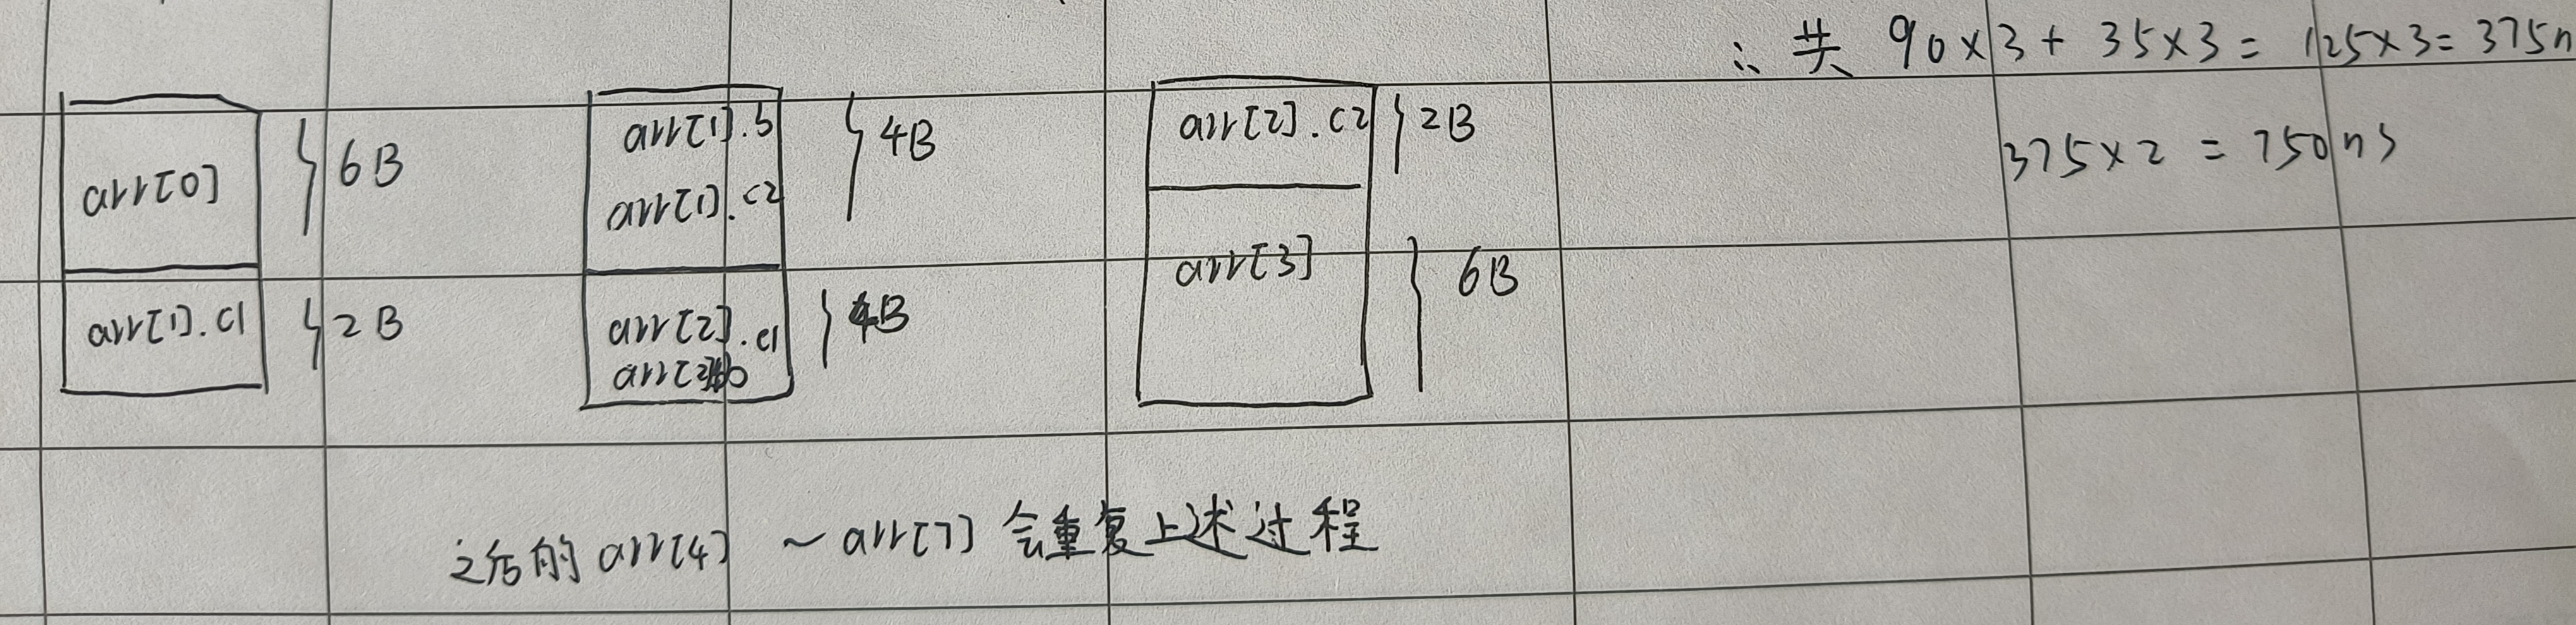 ∴ 共 90×3 + 35×3 = 125×3 = 375n
375×2 = 750ns
arr[0]
6B
arr[1].c1
2B
arr[1].b
arr[1].c2
4B
arr[2].c1
4B
arr[2].c2
2B
arr[3]
6B
之后的 arr[4] ~ arr[7] 会重复上述过程